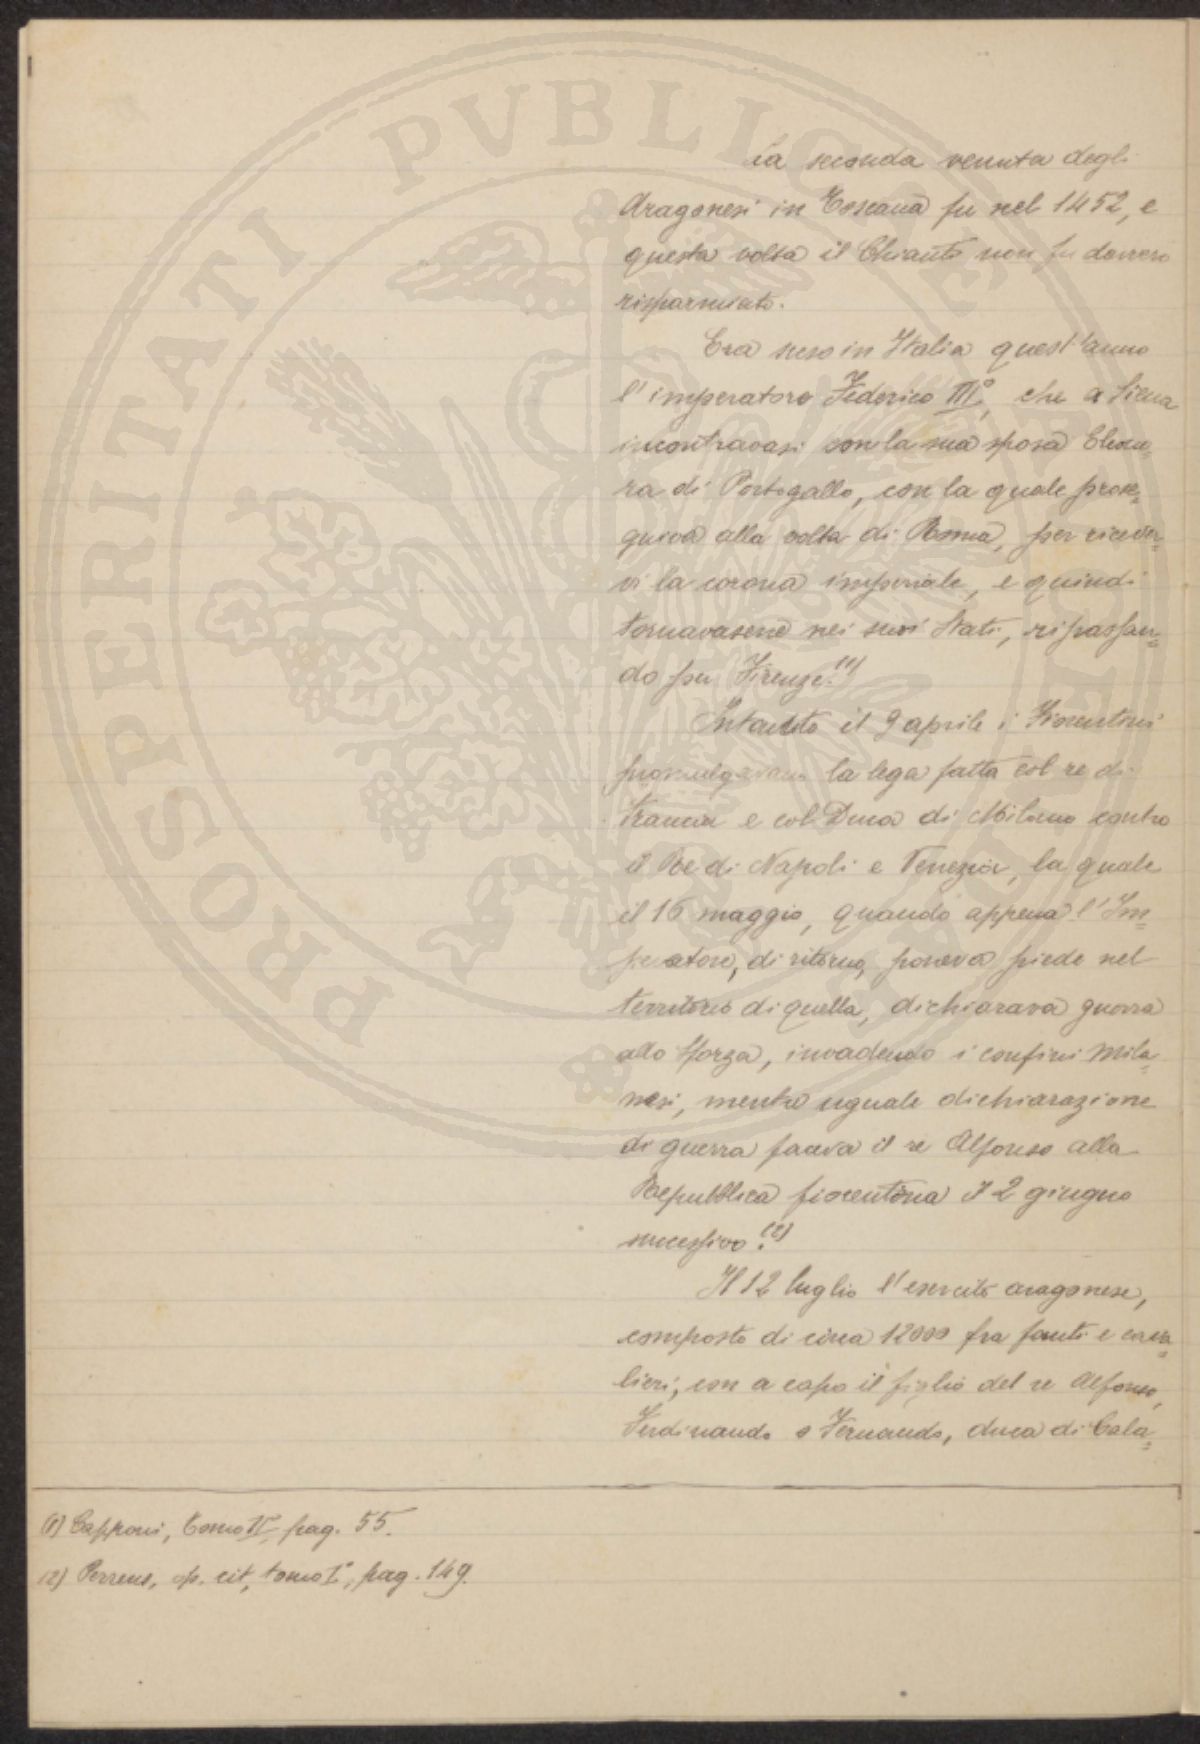 La seconda venuta degli
Aragonesi in Toscana fu nel 1452, e
questa volta il Chianti non fu davvero
risparmiato.
Era sceso in Italia quest'anno
l'imperatore Federico III°, che a Siena
incontravasi con la sua sposa Eleono=
ra di Portogallo, con la quale prose=
guiva alla volta di Roma, per ricever=
vi la corona imperiale, e quindi
tornavasene nei suoi Stati, ripassan=
do per Firenze.(1)
Intanto il 9 aprile i Fiorentini
promulgavano la lega fatta col re di
Francia e col Duca di Milano contro
il Re di Napoli e Venezia, la quale
il 16 maggio, quando appena l'Im=
peratore, di ritorno, poneva piede nel
territorio di quella, dichiarava guerra
allo Sforza, invadendo i confini Mila=
nesi, mentre uguale dichiarazione
di guerra faceva il re Alfonso alla
Repubblica fiorentina il 2 giugno
successivo.(2)
Il 12 luglio l'esercito aragonese,
composto di circa 12000 fra fanti e cava=
lieri, con a capo il figlio del re Alfonso,
Ferdinando o Fernando, duca di Cala=
(1) Capponi, Tomo II°, pag. 55.
(2) Perrens, op. cit, tomo I°, pag. 149.
PROSPERITATI PVBLICAE